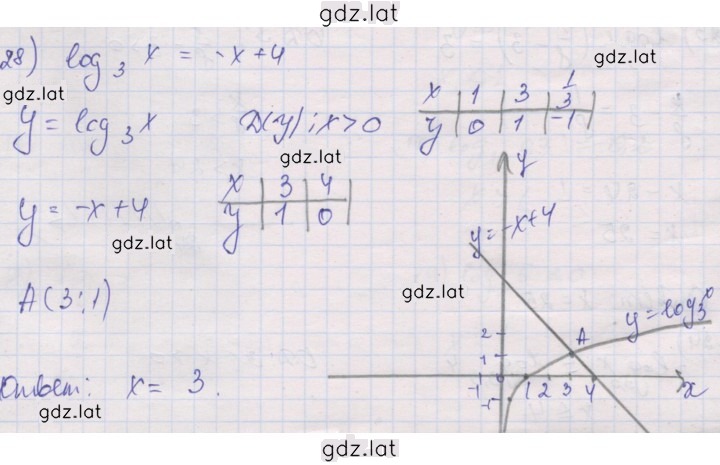 gdz.lat
28) log₃ x = -x+4
gdz.lat
gdz.lat
y = log₃ x D(y): x>0
x | 1 | 3 | 1/3 |
y | 0 | 1 | -1 |
gdz.lat
y = -x+4
x | 3 | 4 |
y | 1 | 0 |
gdz.lat
A(3;1)
Ответ: x = 3.
gdz.lat
y
y=-x+4
gdz.lat
y=log₃
2
1
A
-1 1 2 3 4 x
-1
gdz.lat